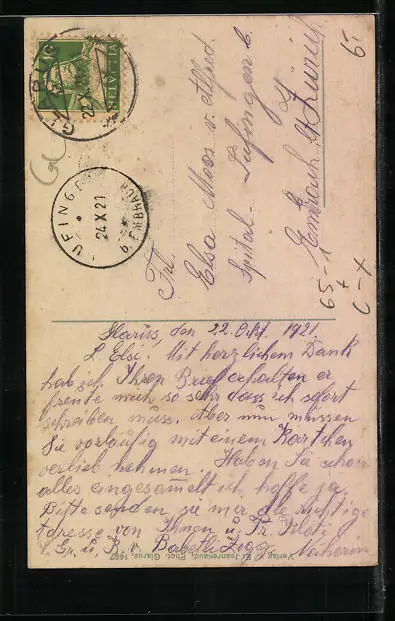 HELVETIA
GLARUS
22.X.
LUFINGEN
24 X 21
b. EMBRACH
Frl.
Elsa Moos v. Alfred.
Spital - Lufingen b.
Embrach Kt. Zürich
65-1
+
C-X
Glarus, den 22. Okt. 1921.
L. Elsi! Mit herzlichem Dank
hab ich Ihren Brief erhalten er
freute mich so sehr dass ich sofort
schreiben muss. Aber nun müssen
Sie vorläufig mit einem Kärtchen
verlieb nehmen. Haben Sie schon
alles eingesamelt ich hoffe ja.
Bitte senden sie mir die richtige
Adresse von Ihnen u. Fr.
Gr. u. K. v. Babetli Näherin
Verlag v. E. Jeanrenaud, Phot. Glarus.